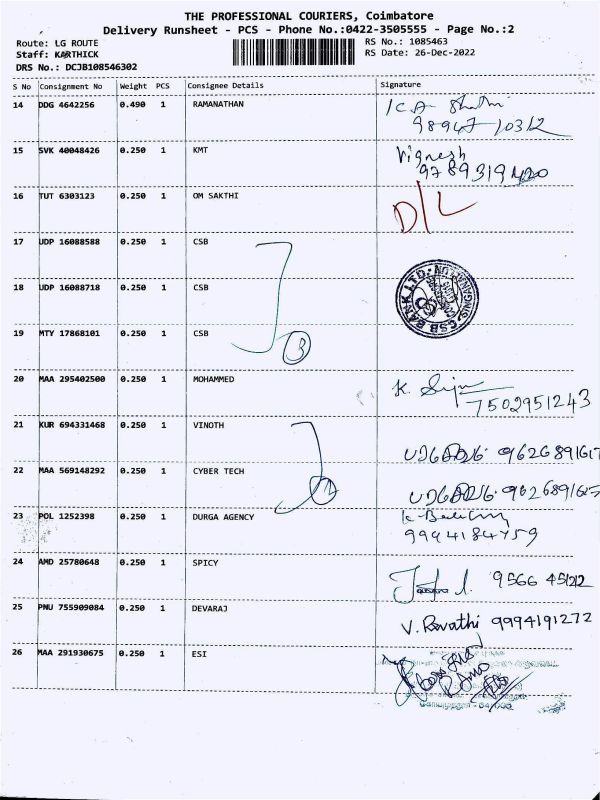 THE PROFESSIONAL COURIERS, Coimbatore
Delivery Runsheet - PCS - Phone No.:0422-3505555 - Page No.:2
Route: LG ROUTE
Staff: KARTHICK
DRS No.: DCJB108546302
RS No.: 1085463
RS Date: 26-Dec-2022
S No Consignment No Weight PCS Consignee Details Signature
14 DDG 4642256 0.490 1 RAMANATHAN
98947 10312
15 SVK 40048426 0.250 1 KMT Vignesh
9789319420
16 TUT 6303123 0.250 1 OM SAKTHI D/L
17 UDP 16088588 0.250 1 CSB
18 UDP 16088718 0.250 1 CSB
CSB BANK LTD.
19 MTY 17868101 0.250 1 CSB
3
20 MAA 295402500 0.250 1 MOHAMMED K.
7502951243
21 KUR 694331468 0.250 1 VINOTH
22 MAA 569148292 0.250 1 CYBER TECH
23 POL 1252398 0.250 1 DURGA AGENCY
24 AMD 25780648 0.250 1 SPICY
25 PNU 755909084 0.250 1 DEVARAJ V. Revathi 9994191272
26 MAA 291930675 0.250 1 ESI